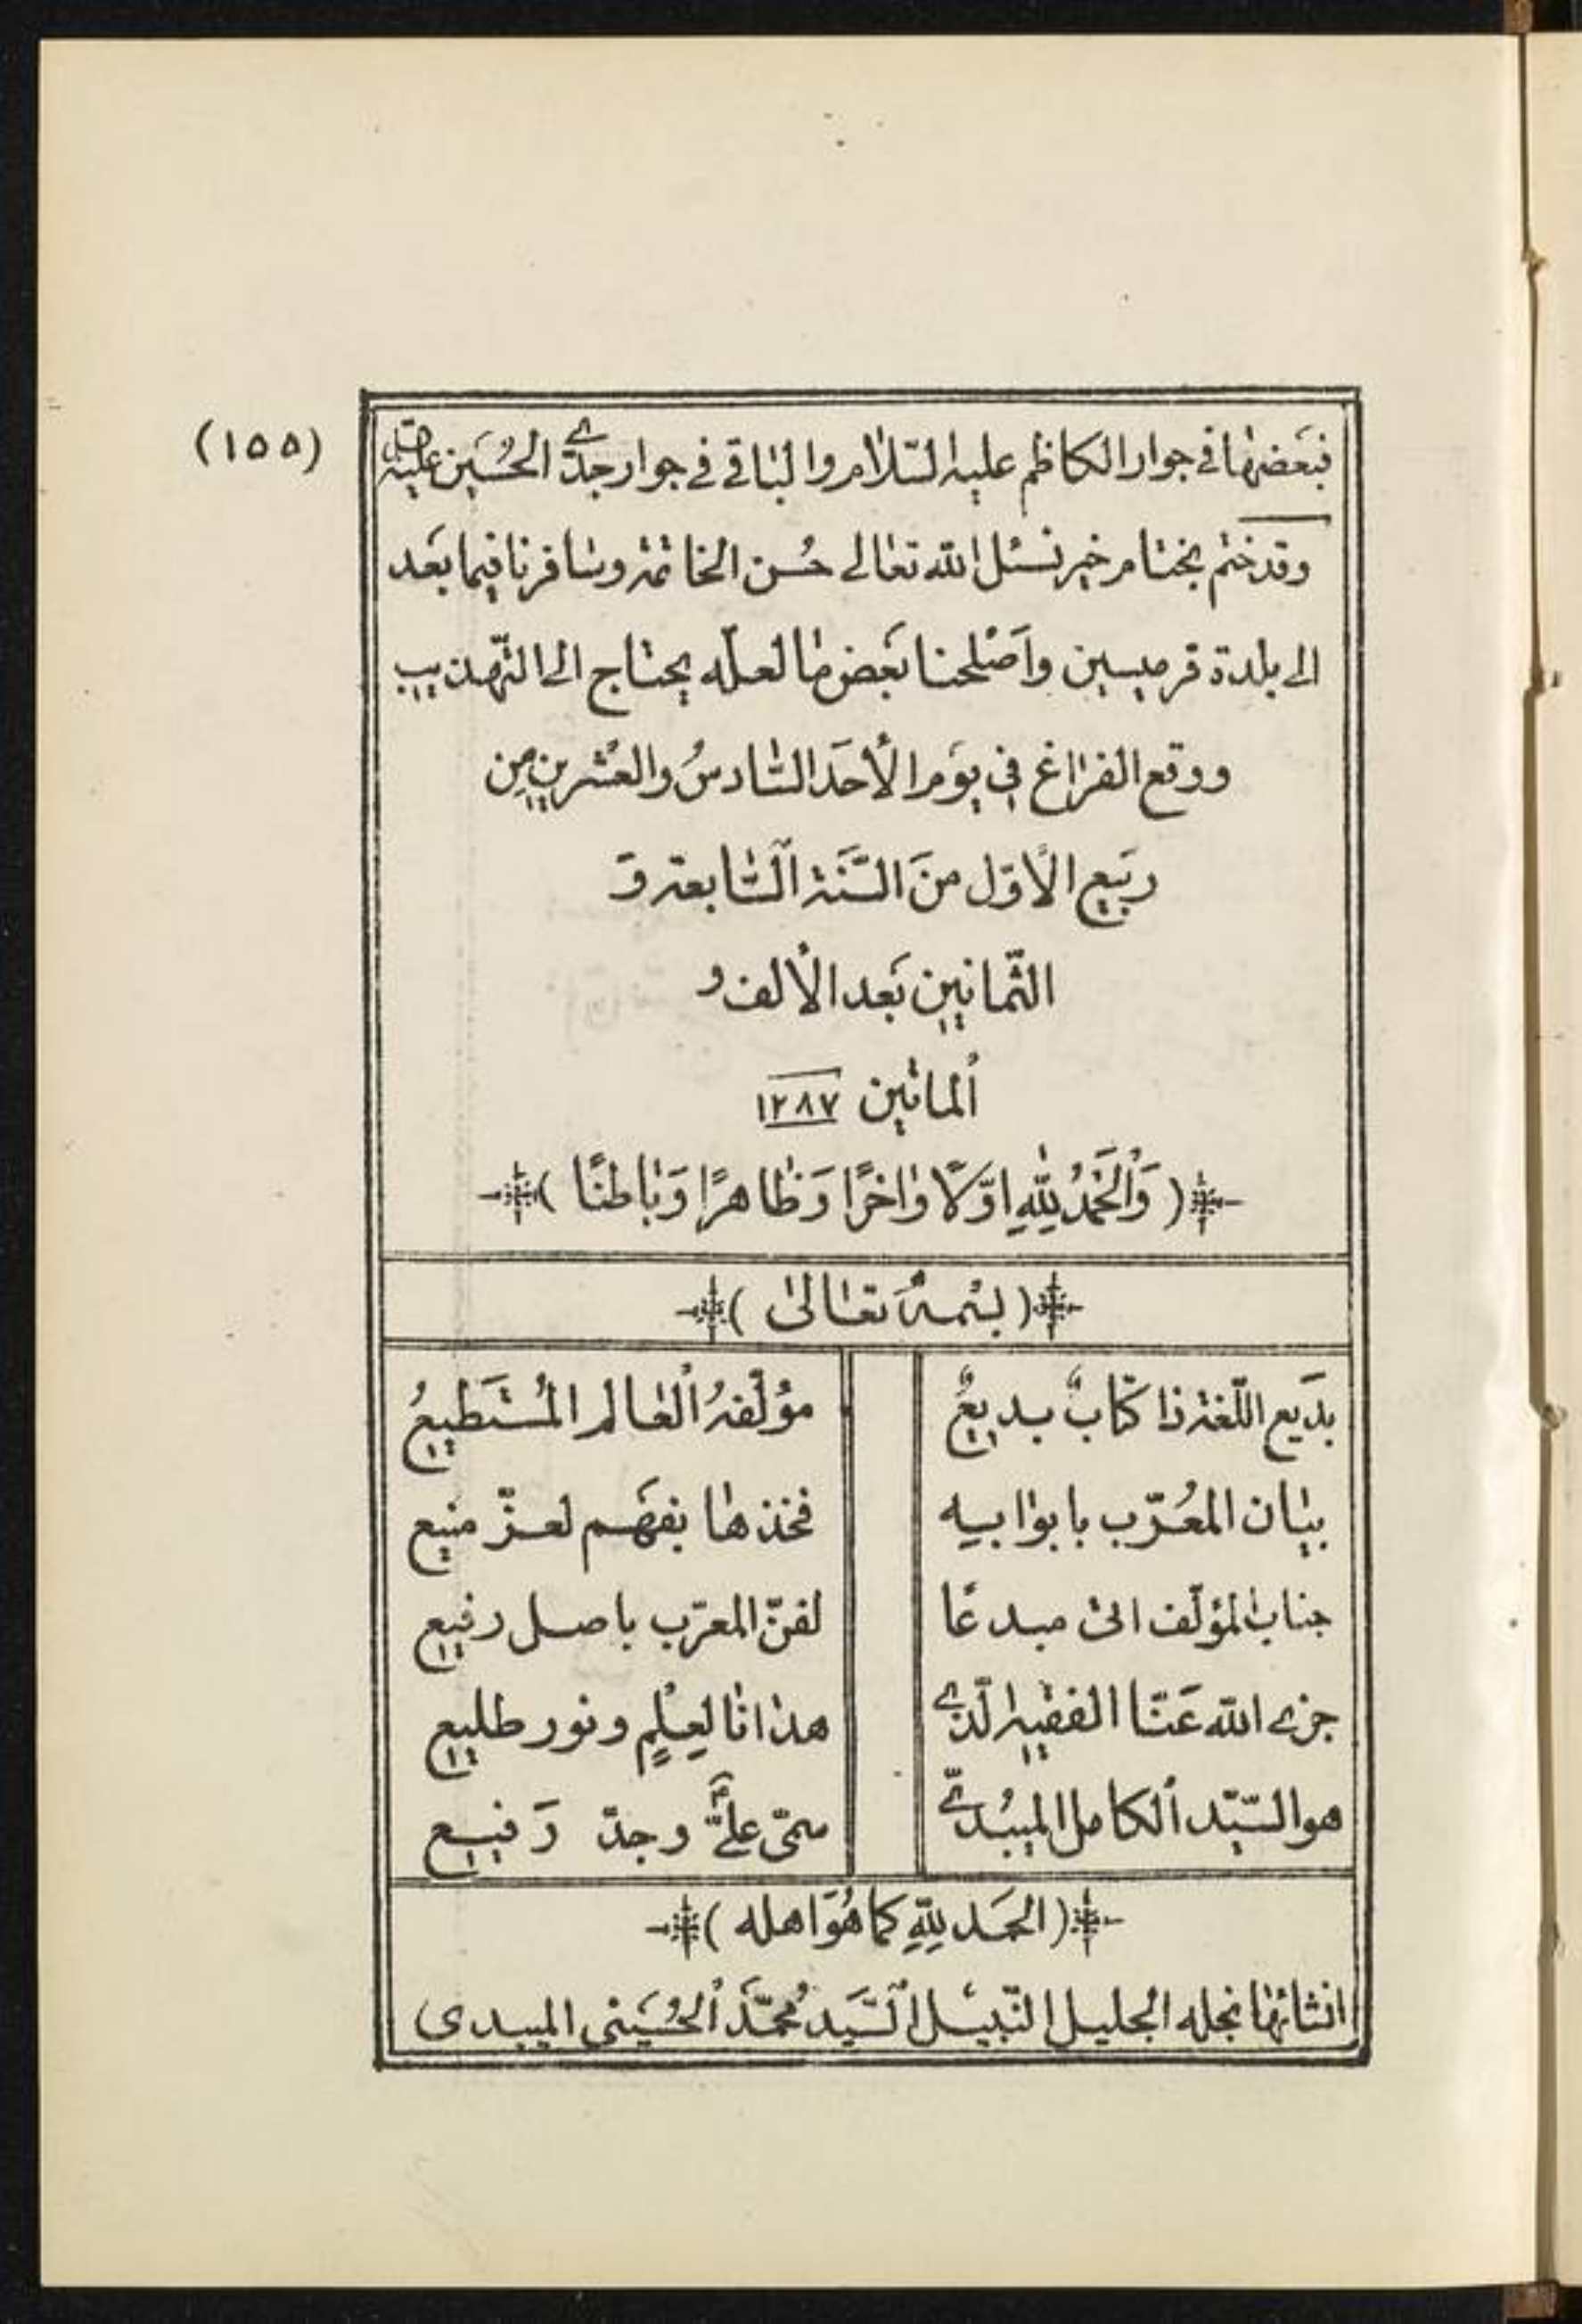 (١٥٥)
فبَعضهٰا في جوار الكاظم عليه السّلام والبٰاقي في جوار جدّي الحُسَين عليه
وقد ختم بختام خير نسئل الله تعٰالى حُسن الخاتمة وسٰافرنا فيما بعَد
الى بلدة قرميسين واَصْلحنا بَعض مٰا لعلّه يحتاج الى التّهذيب
ووقع الفرٰاغ في يوَم الأحَد السّٰادسُ والعُشرين مِن
ربَيع الأوّل منَ السَّنَة اَلسّٰابعة وَ
الثّمانين بَعد الألف و
اُلماتين ١٢٨٧
(وَاْلحَمْدُ لِلّٰهِ اوّلًا وٰاخرًا وَظٰاهرًا وَبٰاطنًا)
(بسْمهُ تعٰالىٰ)
بدَيع اللّغة ذا كتٰابٌ بديعٌ
مؤلّفهُ اْلعٰالم المُستَطيعُ
بيٰان المعُرّب بابوٰابيه
فخذهٰا بفهَم لعزّ منيع
جنابُ المؤلّف اتىٰ مبدعًا
لفنّ المعرّب باصل رفيع
جزى الله عَنّا الفقيه الّذي
هدٰانٰا لِعِلْمٍ ونور طليع
هو السّيّد اْلكامل الميبُديّ
سمّى عليٌّ وجدّ رَفيع
(الحمَد لِلّهِ كما هُوَ اهله)
انشائهٰا نجله الجليل النّبيل اَلسّيَد مُحمّدَ اْلحُسَينى الميبدى